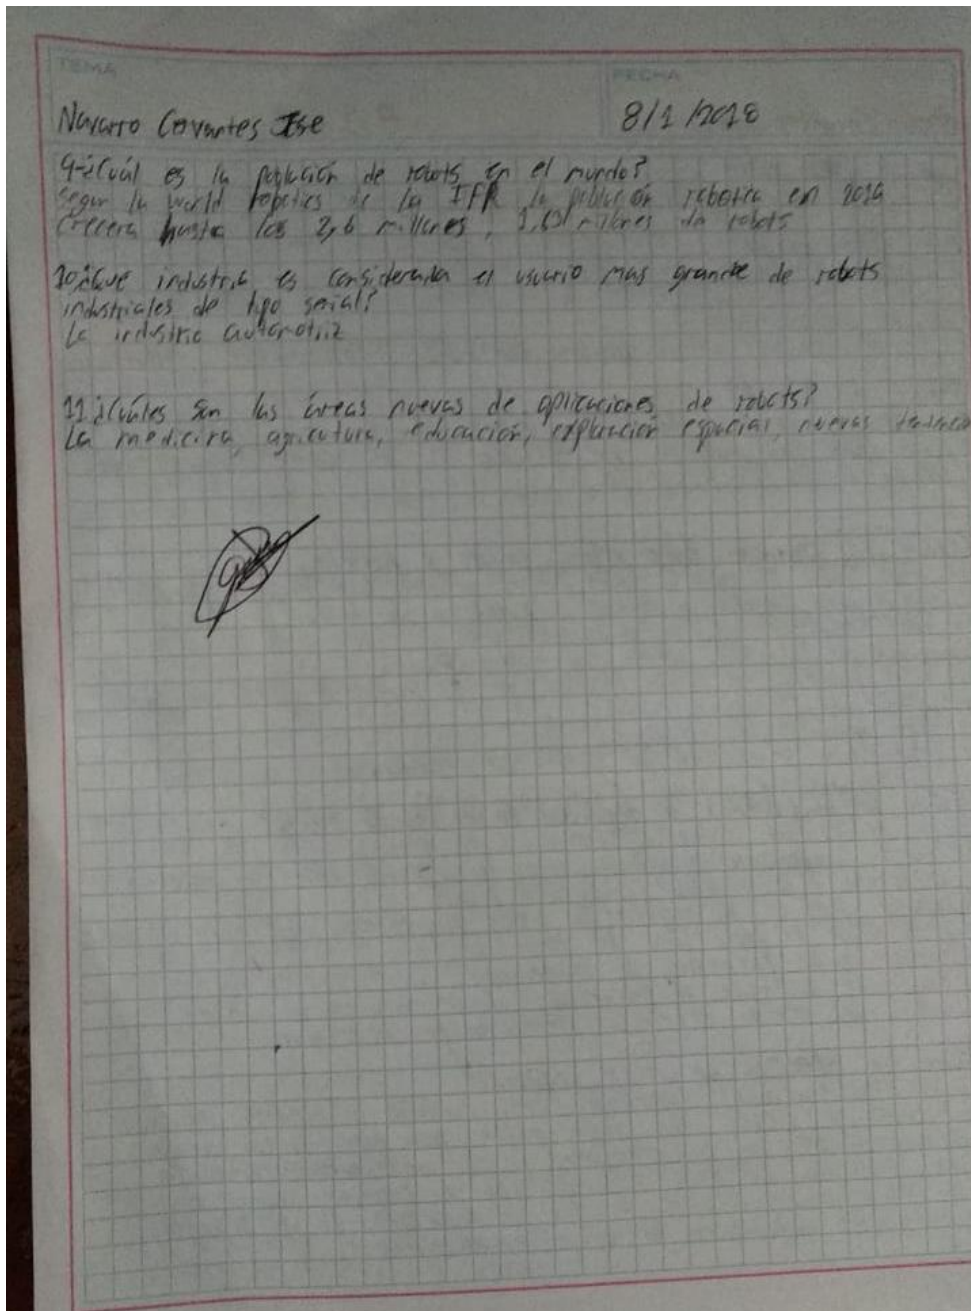 TEMA
FECHA
Navarro Cervantes Jse
8/1/2018
9-¿Cuál es la población de robots en el mundo?
Segun la world robotics de la IFR la población robotica en 2019
crecera hasta los 2,6 millones, 1,63 millones de robots
10¿Que industria es considerada el usuario mas grande de robots
industriales de tipo serial?
La industria automotriz
11¿Cuáles son las áreas nuevas de aplicaciones de robots?
La medicina, agricutura, educación, exploración espacial, nuevas